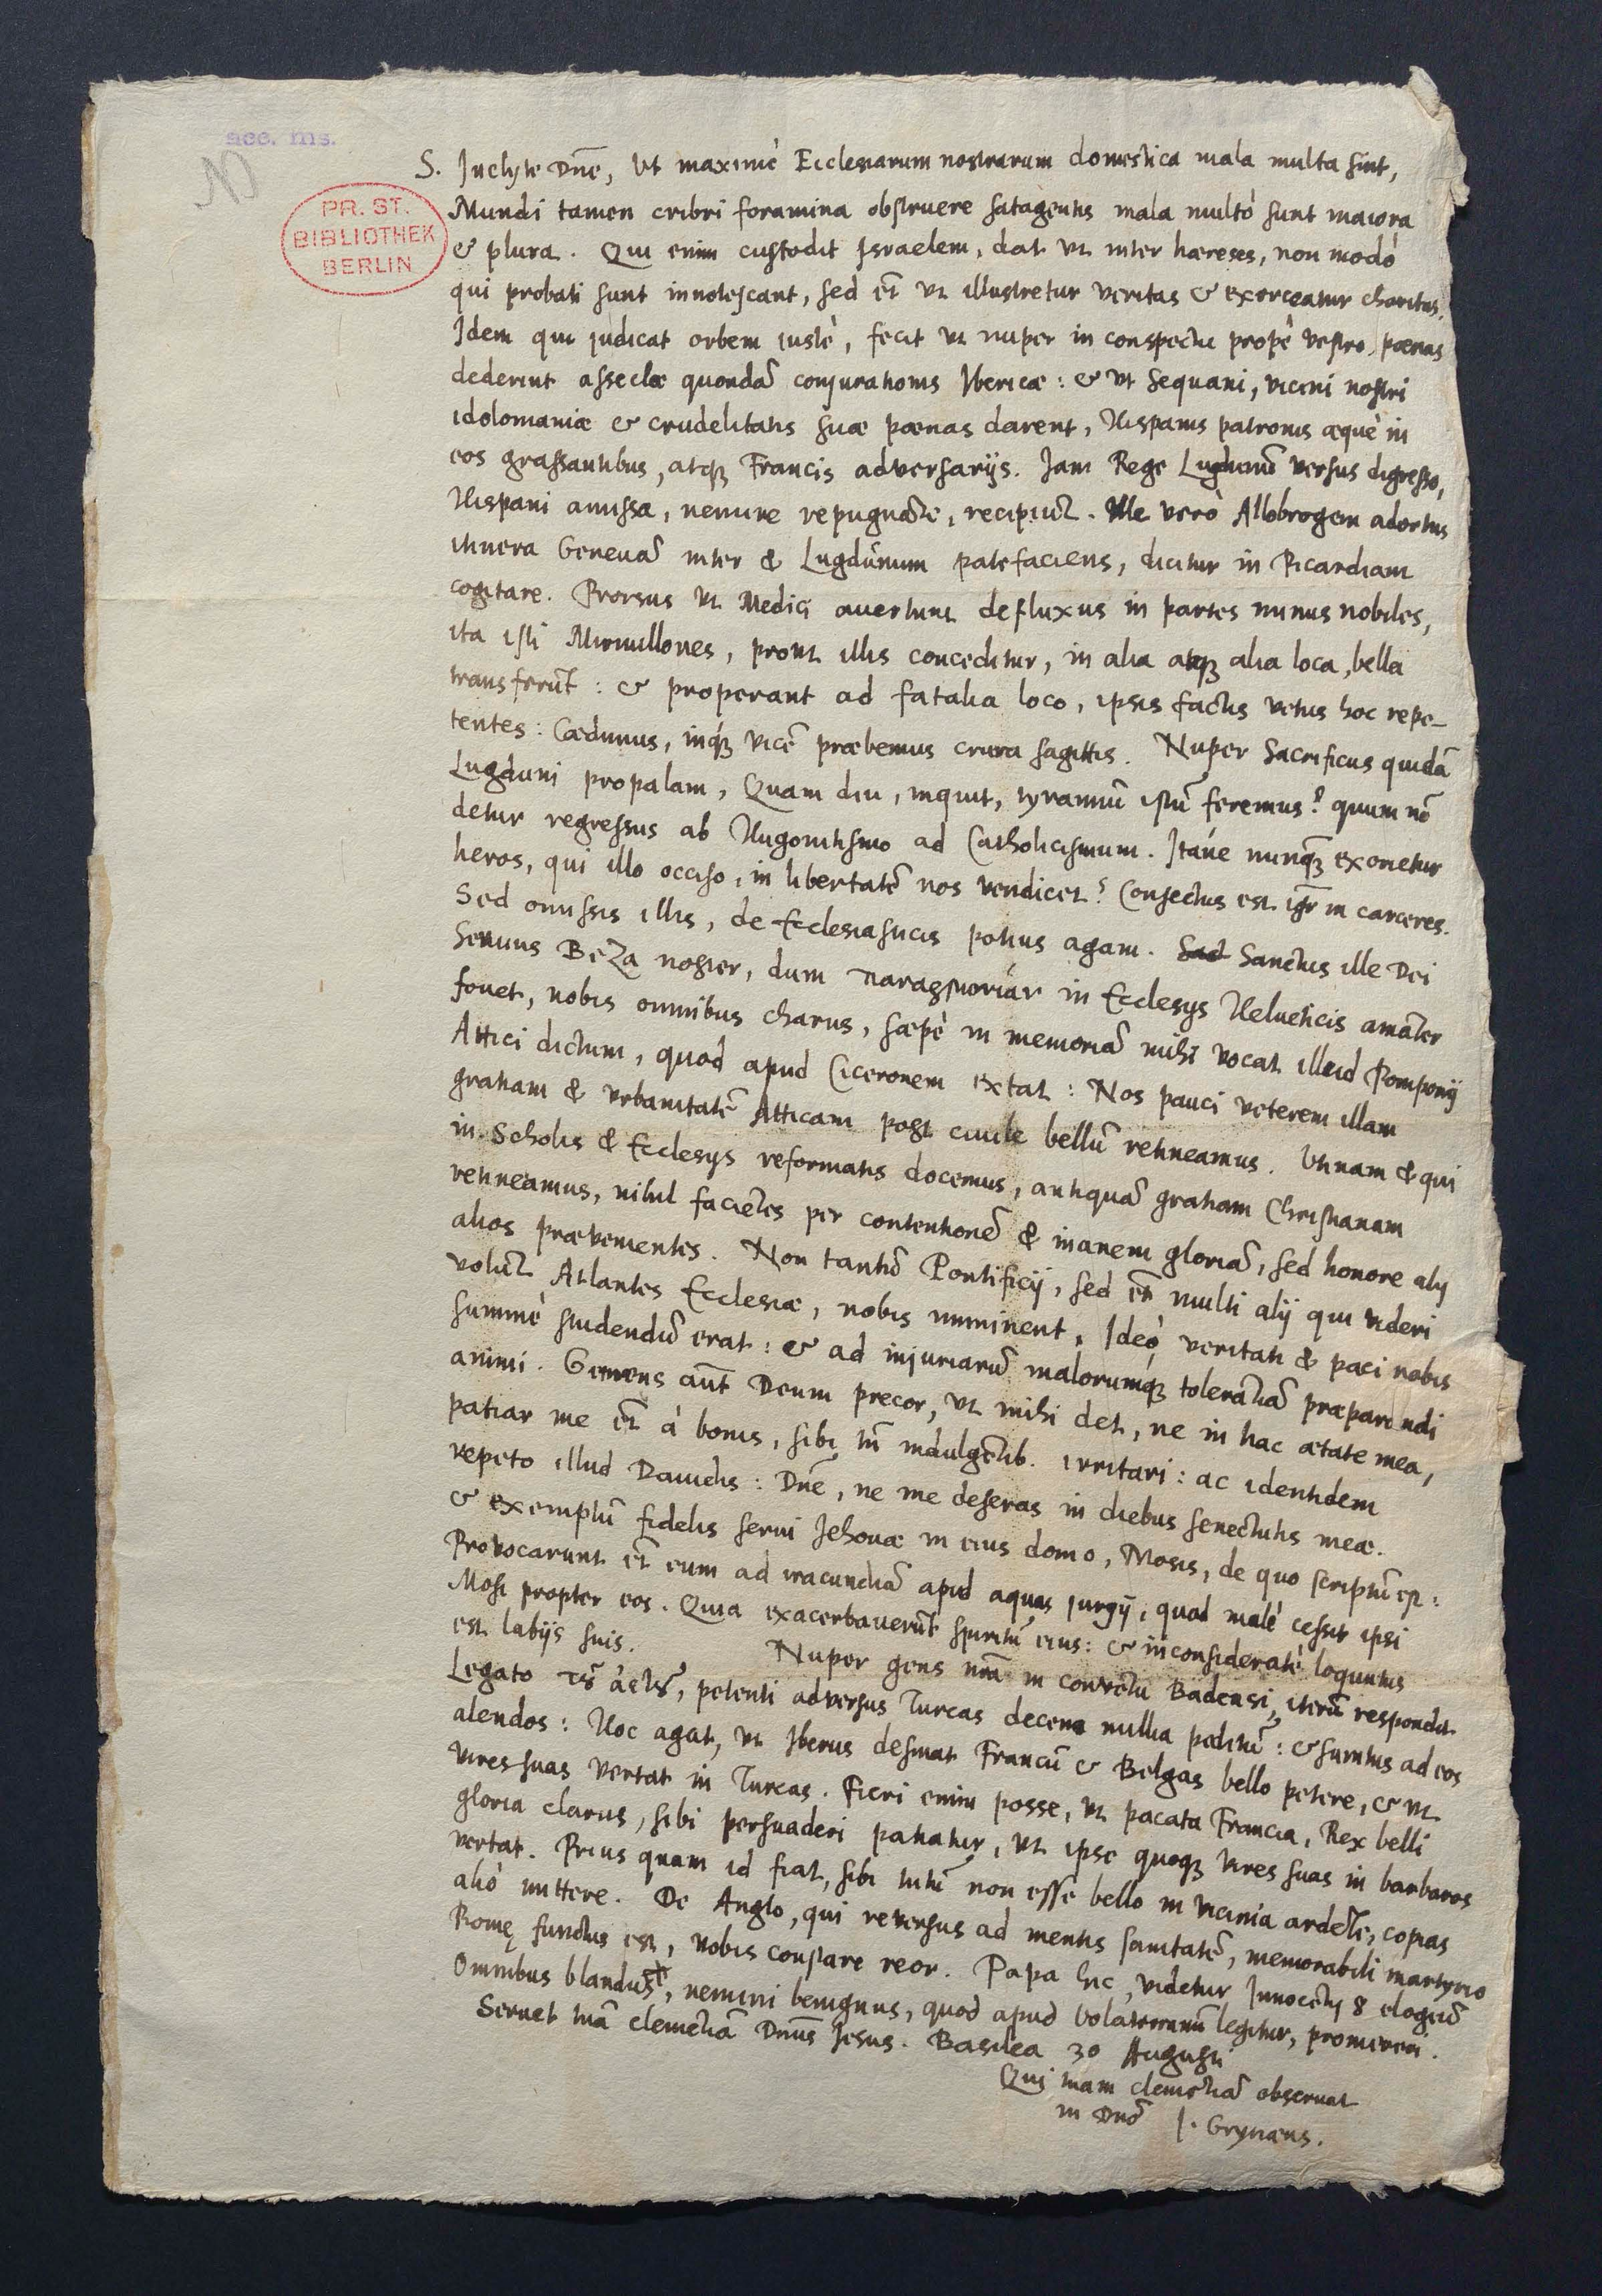 acc. ms.
N
PR. ST.
BIBLIOTHEK
BERLIN
S. Inclyte Dñe, Vt maximè Ecclesiarum nostrarum domestica mala multa sint,
Mundi tamen cribri foramina obstruere satagentis mala multò sunt maiora
& plura. Qui enim custodit Israelem, dat vt inter hæreses, non modò
qui probati sunt innotescant, sed et̃ vt illustretur veritas & exerceatur charitas.
Idem qui judicat orbem justè, fecit vt nuper in conspectu propè vestro, pœnas
dederint asseclæ quondã conjurationis Ibericæ: & vt Sequani, vicini nostri
idolomaniæ & crudelitatis suæ pœnas darent, Hispanis patronis æquè in
eos grassantibus, atq; Francis adversarijs. Jam Rege Lugdunũ versus digresso,
Hispani amissa, nemine repugnãte, recipiũt. Ille verò Allobrogem adortus
itinera Genevã inter & Lugdunum patefaciens, dicitur in Picardiam
cogitare. Prorsus vt Medici avertunt defluxus in partes minus nobiles,
ita isti Mirmillones, prout illis conceditur, in alia atq; alia loca, bella
transferũt: & properant ad fatalia loco, ipsis factis vetus hoc repe-
tentes: Cædimus, inq́; vicẽ præbemus crura sagittis. Nuper Sacrificus quidã
Lugduni propalam, Quam diu, inquit, tyrannũ istũ feremus? quum nõ
detur regressus ab Hugonitismo ad Catholicismum. Itáne nunq; exorietur
heros, qui illo occiso, in libertatẽ nos vendicet? Conjectus est igr̃ in carceres.
Sed omissis illis, de Ecclesiasticis potius agam. Sed Sanctus ille Dei
Servus Beza noster, dum in Ecclesijs Helueticis amãter
fouet, nobis omnibus charus, sæpè in memoriã mihi vocat illud Pomponij
Attici dictum, quod apud Ciceronem extat: Nos pauci veterem illam
gratiam & vrbanitatẽ Atticam post ciuile bellũ retineamus. Vtinam & qui
in Scholis & Ecclesijs reformatis docemus, antiquã gratiam Christianam
retineamus, nihil faciẽtes per contentionẽ & inanem gloriã, sed honore alij
alios prævenientes. Non tantũ Pontificij, sed et̃ multi alij qui videri
volũt Atlantes Ecclesiæ, nobis imminent. Ideò veritati & paci nobis
summè studendũ erat: & ad injuriarũ malorumq́; tolerãtiã præparandi
animi. Gemens aũt Deum precor, vt mihi det, ne in hac ætate mea,
patiar me et̃ à bonis, sibi tñ indulgẽtib. irritari: ac identidem
repeto illud Dauidis: Dñe, ne me deseras in diebus senectutis meæ.
& exemplũ fidelis serui Jehouæ in eius domo, Mosis, de quo scriptũ est:
Provocarunt et̃ eum ad iracundiã apud aquas jurgij, quod malè cessit ipsi
Mosi propter eos. Quia exacerbauerũt spiritũ eius: & inconsideratè loqutus
est labijs suis. Nuper gens nr̃a in conventu Badensi, iterũ respondit
Legato petenti adversus Turcas decem millia peditũ: & sumtus ad eos
alendos: Hoc agat, vt Iberus desinat Francũ & Belgas bello petere, & vt
vires suas vertat in Turcas. Fieri enim posse, vt pacata Francia, Rex belli
gloria clarus, sibi persuaderi patiatur, vt ipse quoq; vires suas in barbaros
vertat. Prius quam id fiat, sibi tutũ non esse bello in vicinia ardẽte, copias
aliò mittere. De Anglo, qui reversus ad mentis sanitatẽ, memorabili martyrio
Romę functus est, vobis constare reor. Papa hic, videtur Innocẽtij 8 elogiũ
Omnibus blandus, nemini benignus, quod apud Volaterranum legitur, promereri.
Seruet tuã clemẽtiã Dñus Jesus. Basilea 30 Augusti
Qui tuam clemẽtiã obseruat
in Dño J. Grynæus.